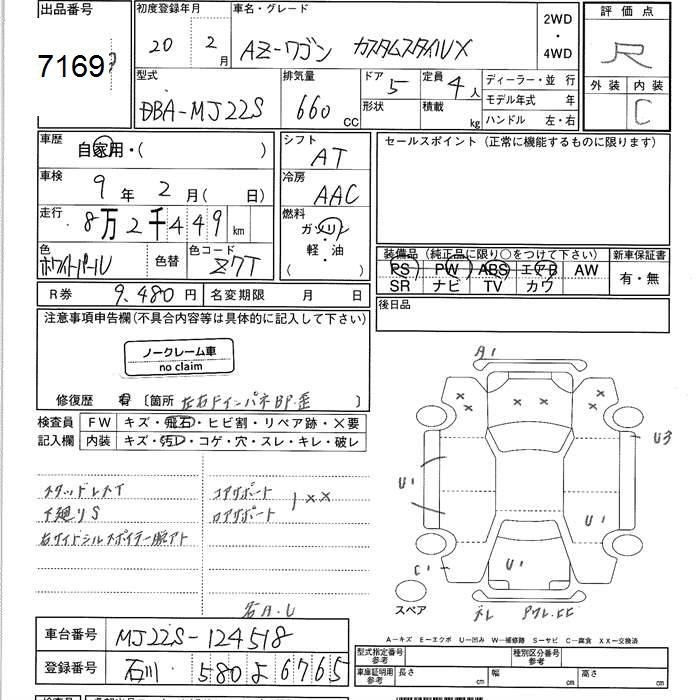 出品番号 初度登録年月 車名・グレード 2WD・4WD 評価点
7169 20年 2月 AZ-ワゴン カスタムスタイルX R
型式 排気量 ドア 定員 ディーラー・並行 外装 内装
DBA-MJ22S 660cc 5 4人 モデル年式 年 C
形状 積載 kg ハンドル 左・右
車歴 自家用・( ) シフト AT セールスポイント (正常に機能するものに限ります)
車検 9年 2月( 日) 冷房 AAC
走行 8万2千449km 燃料 ガソリン・軽・油 ( )
色 ホワイトパール 色替 色コード Z7T
装備品 (純正品に限り○をつけて下さい) 新車保証書
PS PW ABS エアB AW 有・無
SR ナビ TV カワ
R券 9,480円 名変期限 月 日
後日品
注意事項申告欄(不具合内容等は具体的に記入して下さい)
ノークレーム車
no claim
修復歴 有 [箇所 左右Fインパネ BP.歪 ]
検査員 FW キズ・飛石・ヒビ割・リペア跡・×要
記入欄 内装 キズ・汚レ・コゲ・穴・スレ・キレ・破レ
スタッドレスT コアサポート 1××
下廻りS ロアサポート
右サイドシルスポイラー脱アト
右A.U
A1
U3
U1
U1
U1
C1
スペア
A-キズ E-エクボ U-凹み W-補修跡 S-サビ C-腐食 XX-交換済
車台番号 MJ22S-124518
登録番号 石川 580 よ 6765
型式指定番号 参考 種別区分番号 参考
車庫証明用 参考 長さ cm 幅 cm 高さ cm